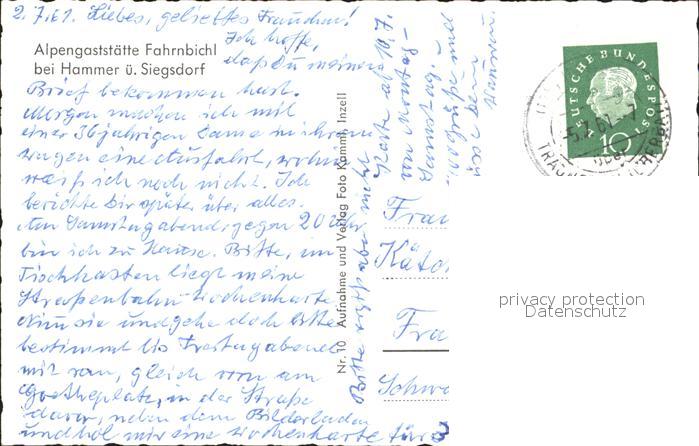 2.7.61. Liebes, geliebtes Frauchen!
Ich hoffe,
daß Du meinen
Alpengaststätte Fahrnbichl
bei Hammer ü. Siegsdorf
Brief bekommen hast.
Morgen machen ich mit
einer 36jährigen Dame in ihrem
wagen eine Ausfahrt, wohin
weiß ich noch nicht. Ich
berichte Dir später über alles.
Am Samstagabend gegen 20 Uhr
bin ich zu Hause. Bitte, im
Tischkasten liegt meine
Straßenbahn-Wochenkarte
Nimm sie und gehe doch bitte
bestimmt bis Freitagabend
mit ran, gleich vorn am
Goetheplatz, in der Straße
davor, neben dem Bilderladen
und hol mir eine Wochenkarte für
Bitte aber nicht
Karte ab 10.7.
von Montag-
Samstag.
1000 Grüße und
Küsse Dein
Nr. 10 Aufnahme und Verlag Foto Kamml, Inzell
DEUTSCHE BUNDESPOST
10
-5.7.61-7
(OBB)
Frau
Käto
Fra
Schwa
privacy protection
Datenschutz